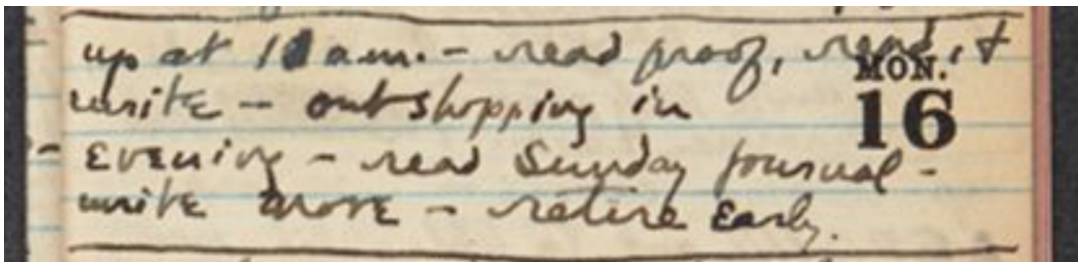 up at 11 a.m. – read proof, read, &
MON.
16
write – out shopping in
evening – read Sunday Journal –
write more – retire early.